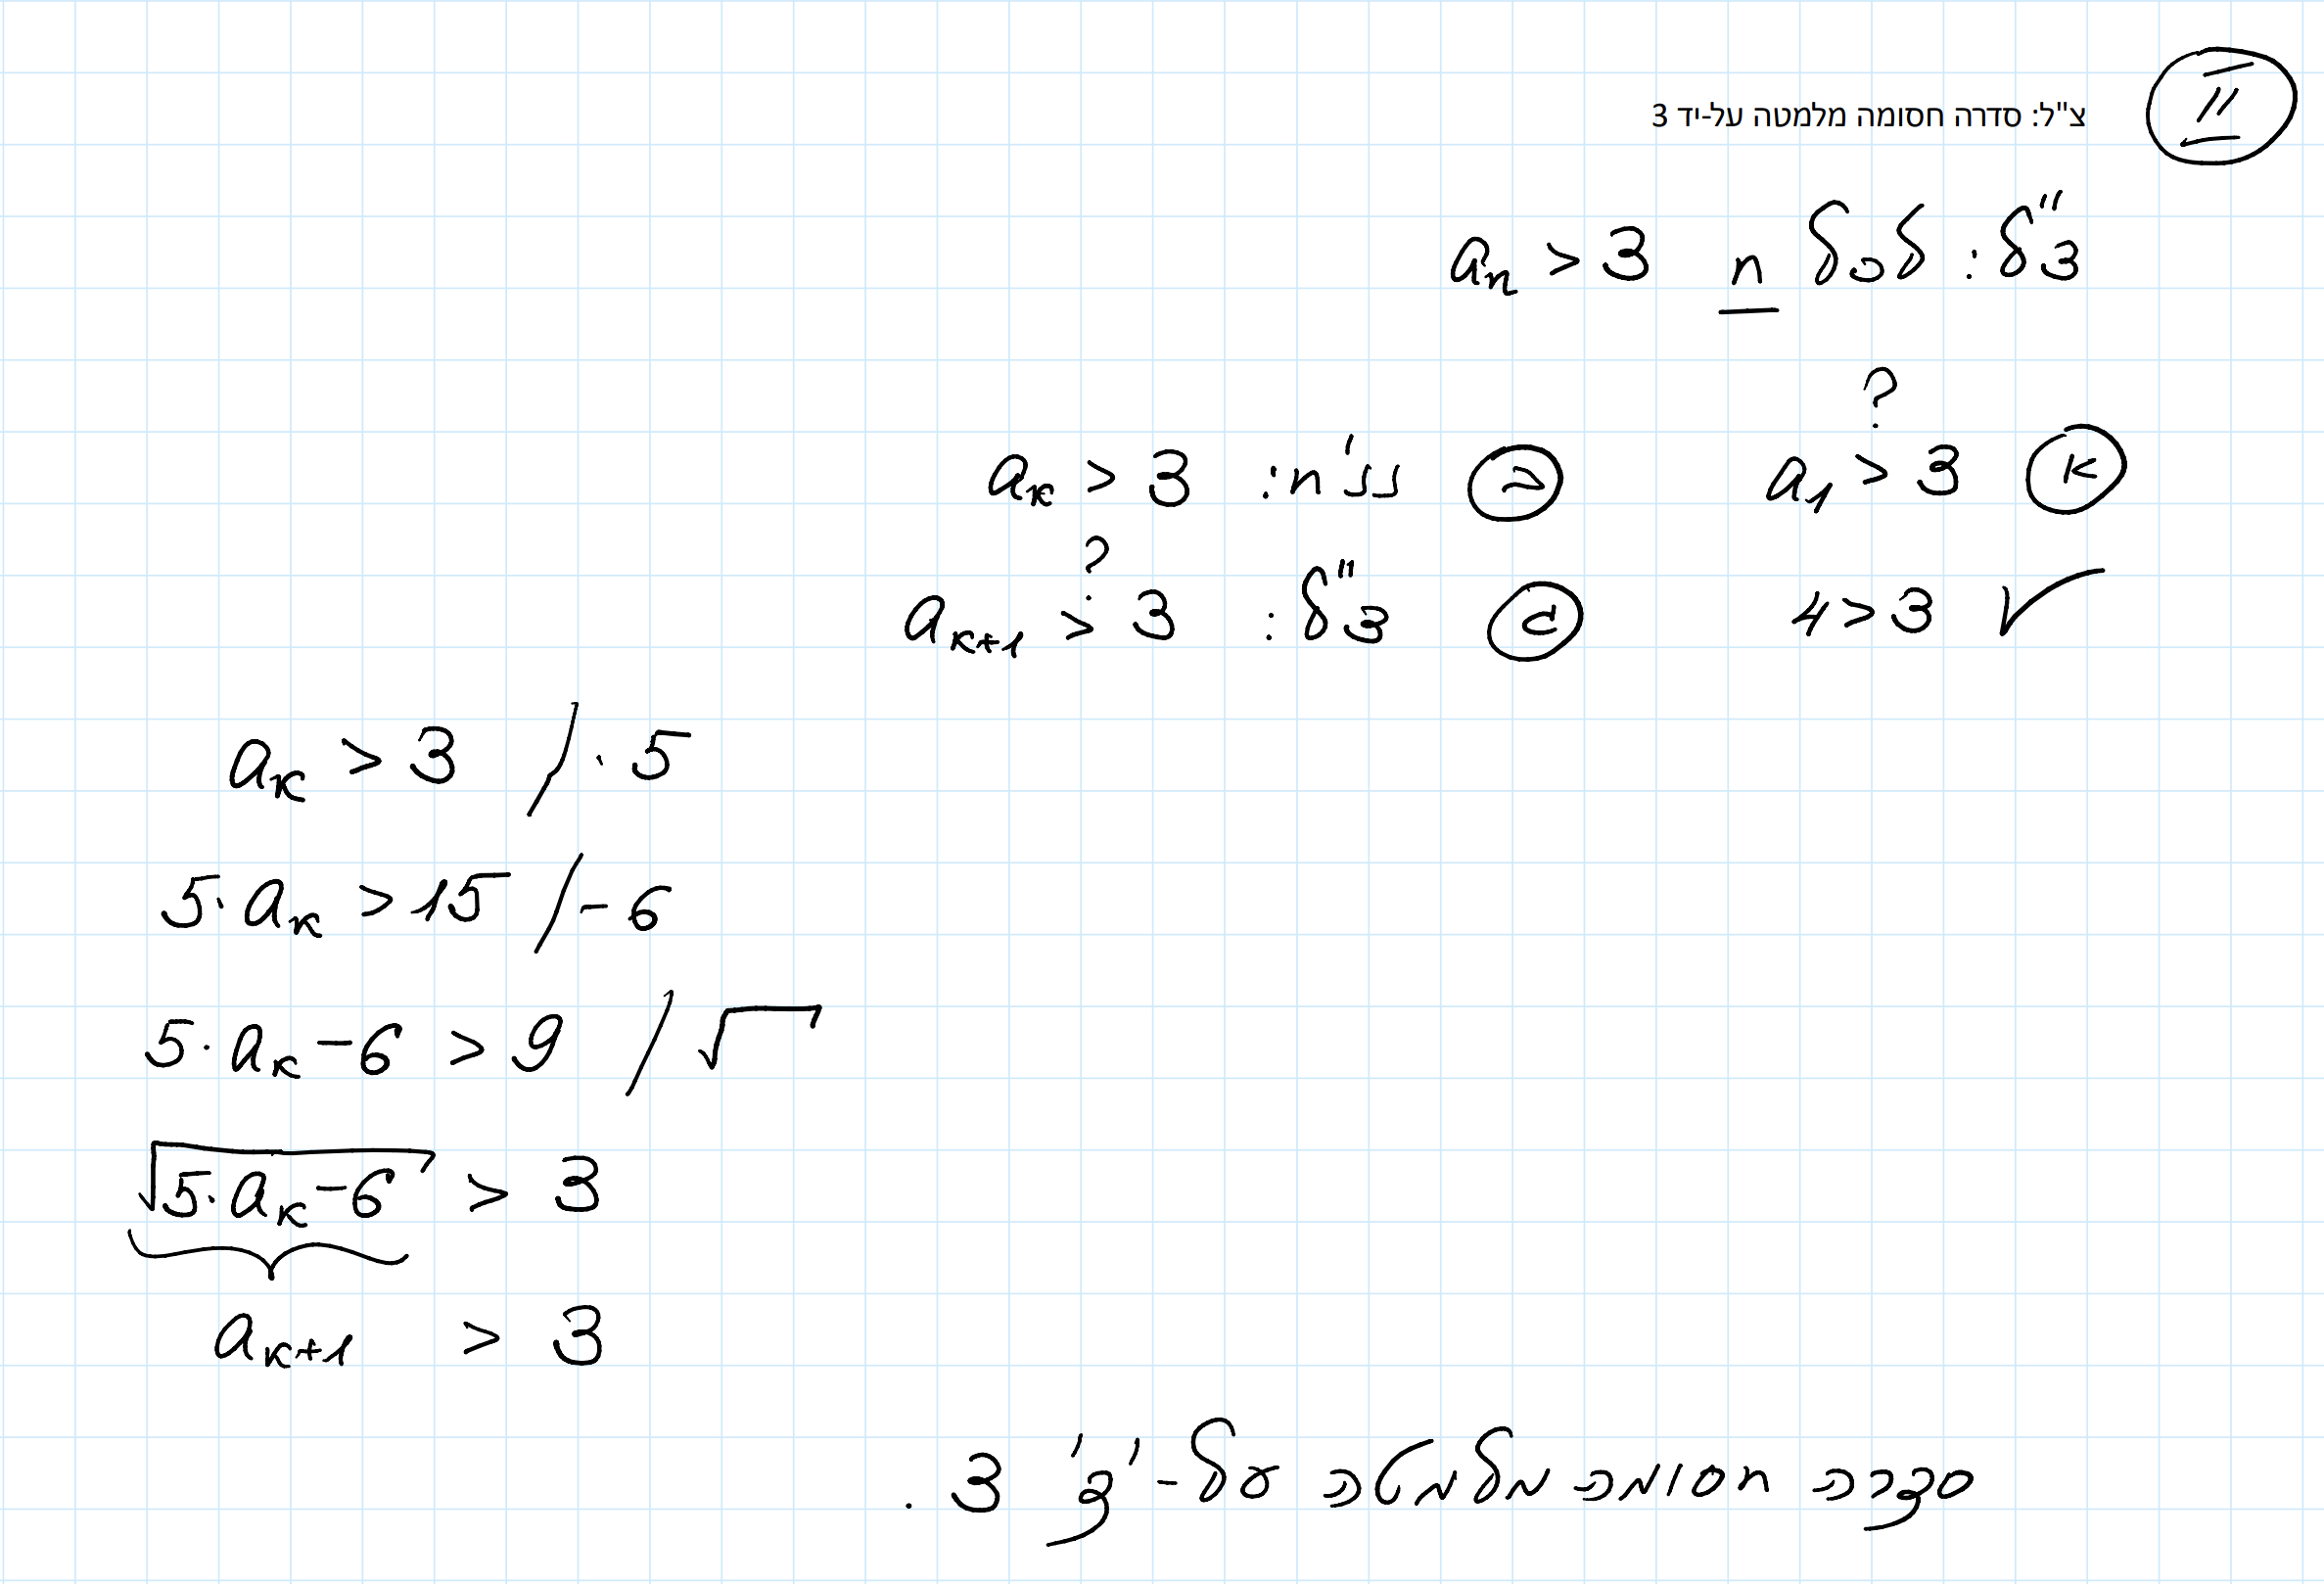 II
צ"ל: סדרה חסומה מלמטה על-יד 3
צ"ל: לכל n a_n > 3
א a_1 >? 3
4 > 3 ✓
ב נניח: a_k > 3
ג צ"ל: a_{k+1} >? 3
a_k > 3 / · 5
5 · a_k > 15 / - 6
5 · a_k - 6 > 9 / √
√(5 · a_k - 6) > 3
a_{k+1} > 3
סדרה חסומה מלמטה על-ידי 3 .